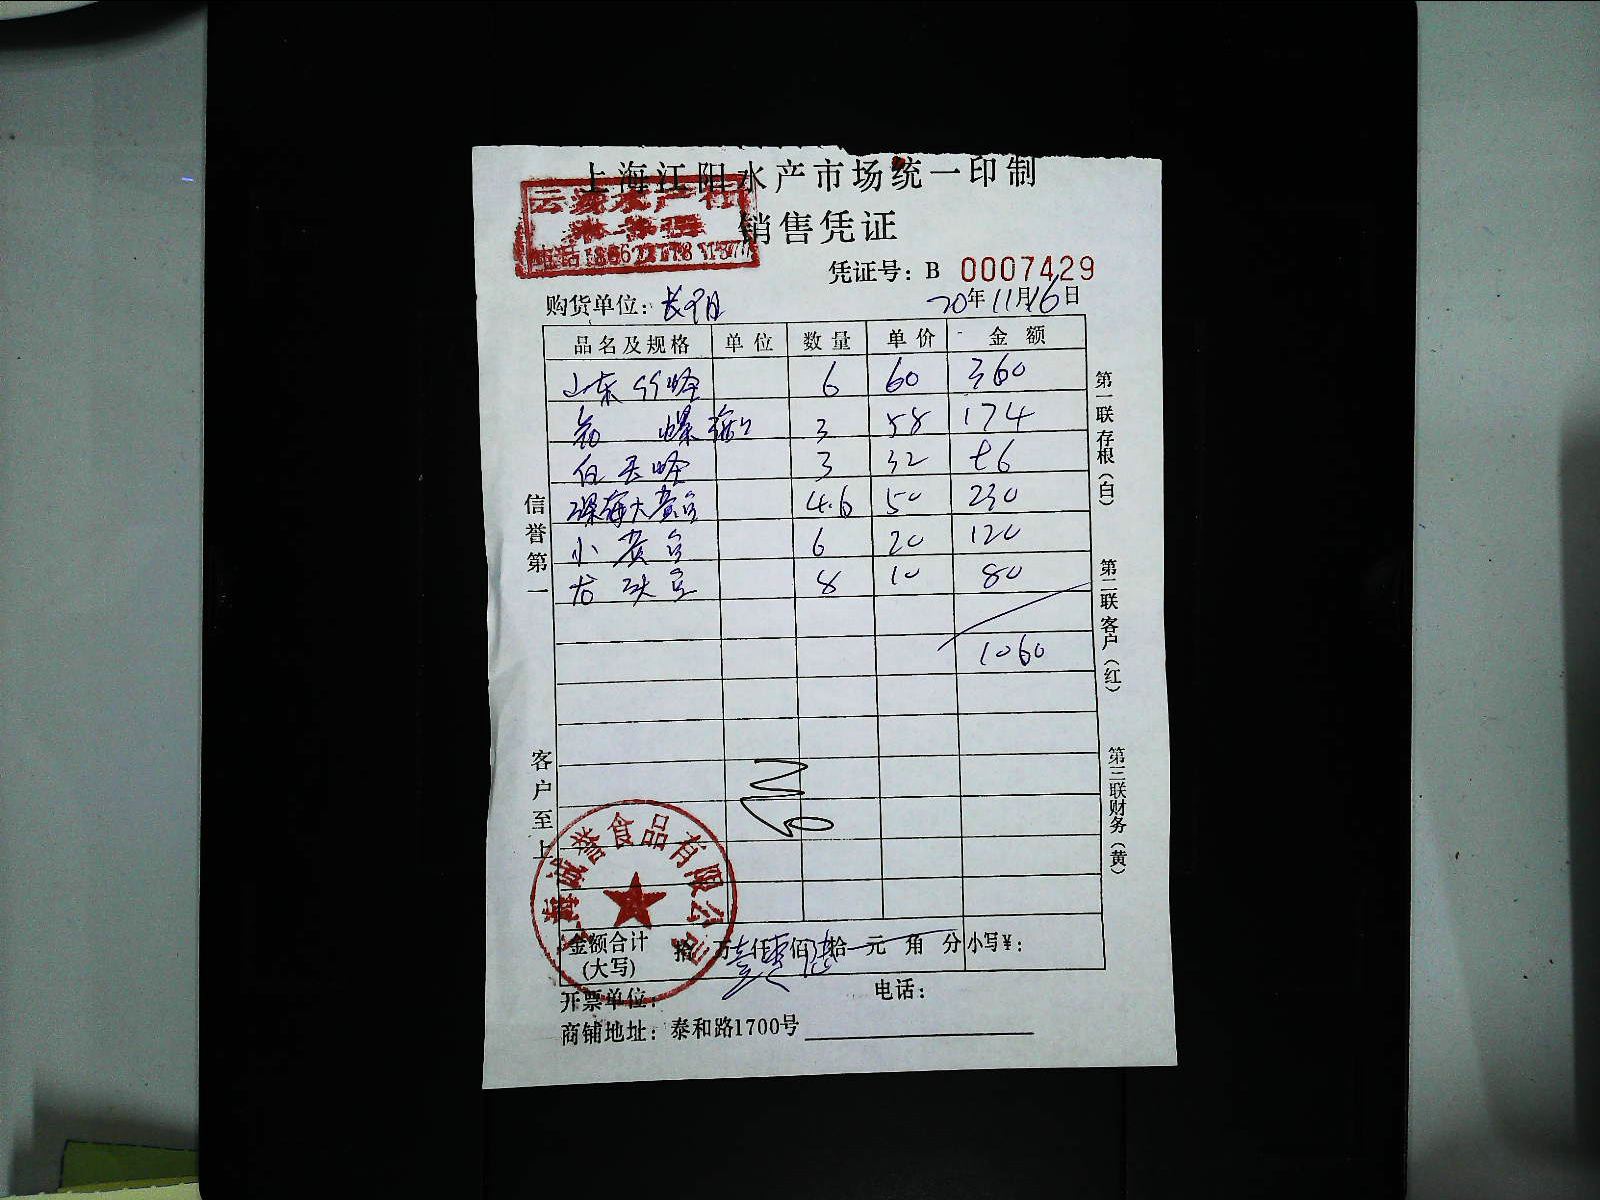 上海江阳水产市场统一印制
销售凭证
凭证号：B 0007429
购货单位：
20年11月16日
品名及规格 单位 数量 单价 金额
山东 竹蛏 6 60 360
螺 3 58 174
白玉蛏 3 32 96
深海大黄鱼 4.6 50 230
小黄鱼 6 20 120
龙头鱼 8 10 80
1060
信誉第一
客户至上
第一联存根（白）
第二联客户（红）
第三联财务（黄）
上海诚誉食品有限公司
金额合计（大写） 拾 万壹仟零佰陆拾 元 角 分 小写￥：
开票单位： 电话：
商铺地址：泰和路1700号